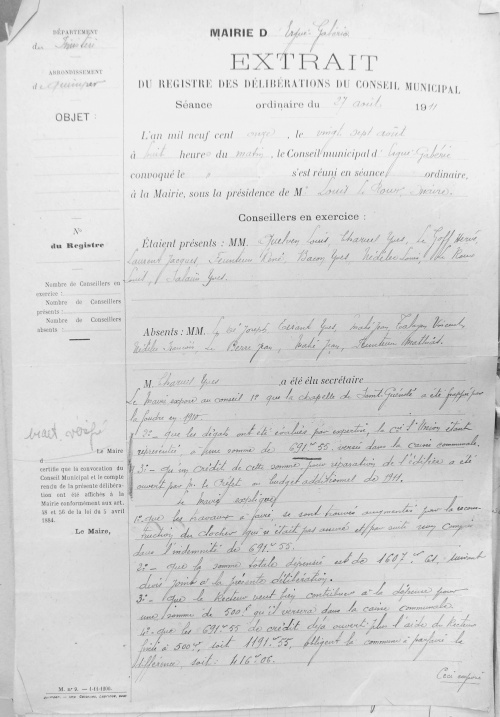 DÉPARTEMENT
du Finistère
ARRONDISSEMENT
d Quimper
OBJET :
N°
du Registre
Nombre de Conseillers en
exercice :
Nombre de Conseillers
présents :
Nombre de Conseillers
absents :
Le Maire
certifie que la convocation du
Conseil Municipal et le compte
rendu de la présente délibération
ont été affichés à la
Mairie conformément aux art.
48 et 56 de la loi du 5 avril
1884.
Le Maire,
M. n° 2. – 1-11-1910.
MAIRIE D Ergué-Gabéric
EXTRAIT
DU REGISTRE DES DÉLIBÉRATIONS DU CONSEIL MUNICIPAL
Séance ordinaire du 27 août 1911
L'an mil neuf cent onze, le vingt sept août
à huit heures du matin, le Conseil municipal d' Ergué-Gabéric
convoqué le s'est réuni en séance ordinaire,
à la Mairie, sous la présidence de M. Louis Le Roux, maire.
Conseillers en exercice :
Étaient présents : MM. Louis, Charuel Yves, Le Goff Hervé,
Laurent Jacques, Feunteun René, Baron Yves, Nédélec Louis, Le Roux
Louis, Salaün Yves.
Absents : MM. Joseph, Yves, Mahé Jean, Vincent,
Nédélec François, Le Berre Jean, Mahé Jean, Feunteun Mathias.
M. Charuel Yves a été élu secrétaire.
Le Maire expose au conseil 1° que la chapelle de Saint-Guénolé a été frappée par
la foudre en 1910.
2°- que les dégâts ont été évalués par expertise, la cie l'Union étant
représentée, à une somme de 691fr 55, versée dans la caisse communale.
3°- qu'un crédit de cette somme pour réparation de l'édifice a été
ouvert par M. le Préfet au budget additionnel de 1911.
Le maire explique
1°- que les travaux à faire se sont trouvés augmentés par la reconstruction
du clocher qui n'était pas assuré et par suite non compris
dans l'indemnité de 691fr 55.
2°- que la somme totale dépensée est de 1607fr 61, suivant
devis joint à la présente délibération.
3°- que le Recteur veut bien contribuer à la dépense pour
une somme de 500fr qu'il versera dans la caisse communale
4°- que les 691fr 55 de crédit déjà ouvert plus l'aide du Recteur
fixée à 500fr, soit 1191fr 55, obligent la commune à parfaire la
différence, soit : 416fr 06.
Ceci exposé